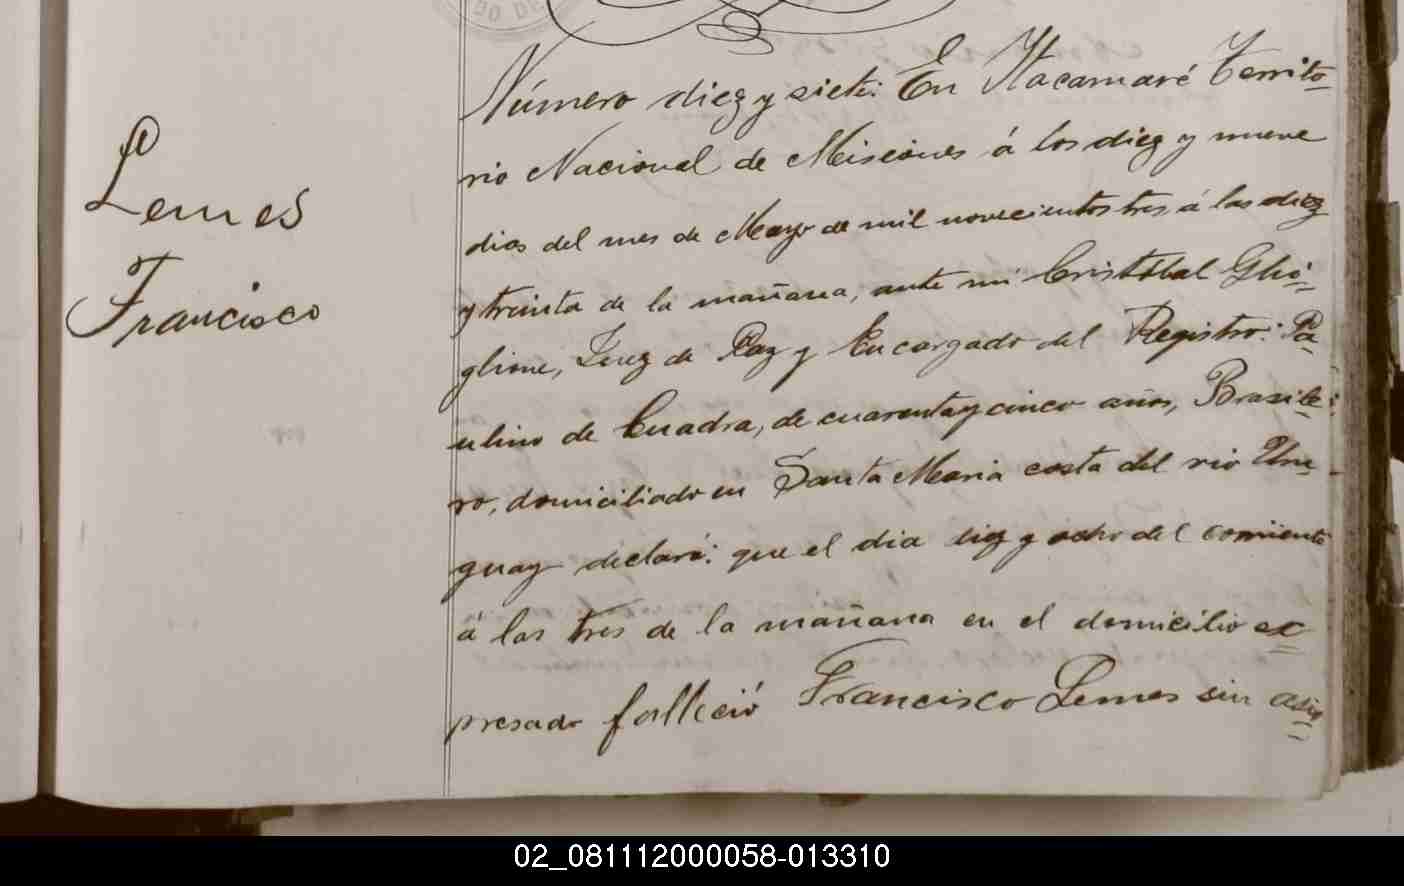 DO DE
Lemes
Francisco
Número diez y siete: En Itacamaré Territo-
rio Nacional de Misiones á los diez y nueve
dias del mes de Mayo de mil novecientos tres, á las diez
y treinta de la mañana, ante mi Cristóbal Ghi-
glione, Juez de Paz y Encargado del Registro: Pa-
ulino de Cuadra, de cuarenta y cinco años, Brasile-
ro, domiciliado en Santa Maria costa del rio Uru-
guay declaró: que el dia diez y ocho del corriente
á las tres de la mañana en el domicilio ex-
presado falleció Francisco Lemes sin asis
02_081112000058-013310